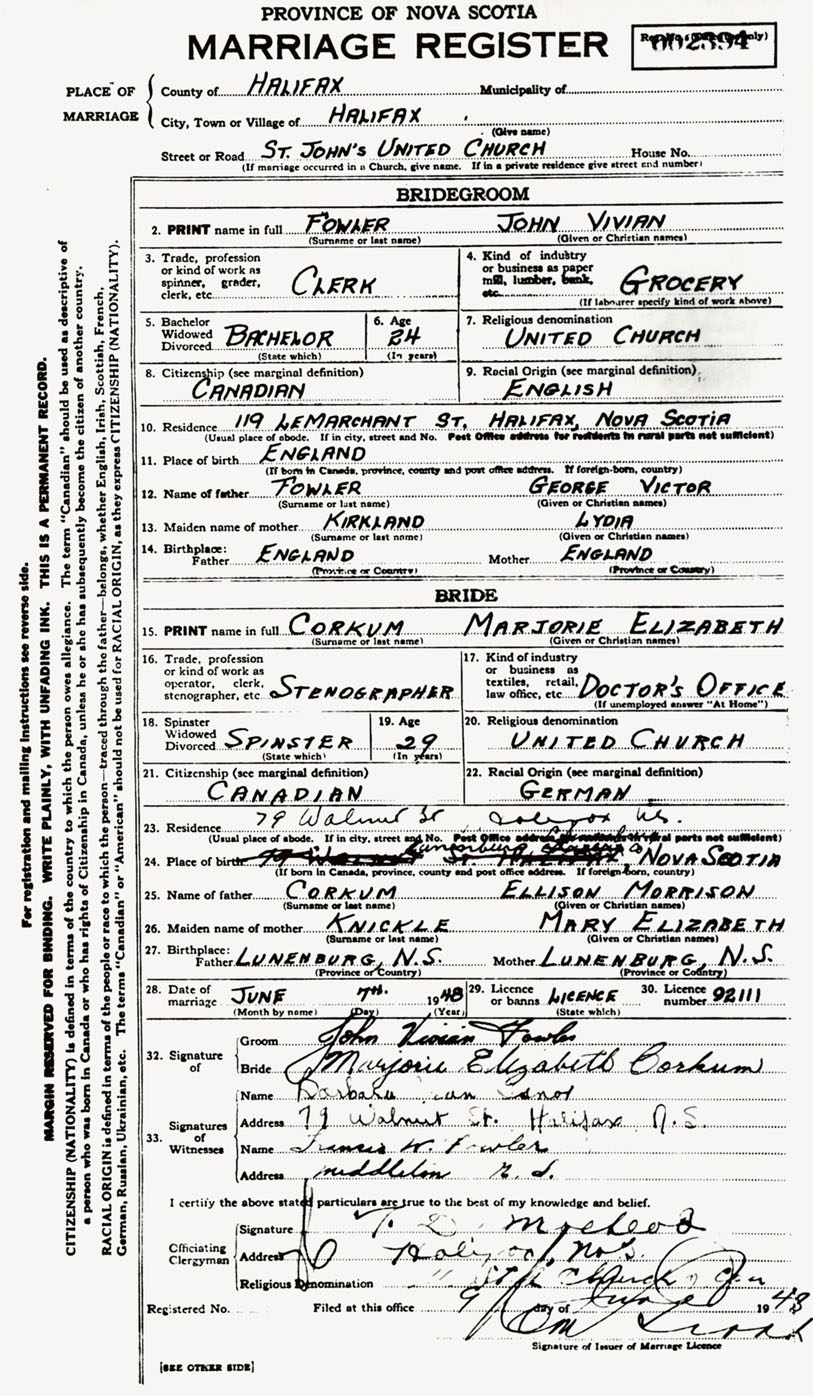 PROVINCE OF NOVA SCOTIA
MARRIAGE REGISTER
002394
PLACE OF MARRIAGE
County of HALIFAX Municipality of
City, Town or Village of HALIFAX
(Give name)
Street or Road ST. JOHN'S UNITED CHURCH House No.
(If marriage occurred in a Church, give name. If in a private residence give street and number)
BRIDEGROOM
2. PRINT name in full FOWLER JOHN VIVIAN
(Surname or last name) (Given or Christian names)
3. Trade, profession or kind of work as spinner, grader, clerk, etc. CLERK
4. Kind of industry or business as paper mill, lumber, bank, etc. GROCERY
(If labourer specify kind of work above)
5. Bachelor Widowed Divorced BACHELOR
(State which)
6. Age 24
(In years)
7. Religious denomination
UNITED CHURCH
8. Citizenship (see marginal definition)
CANADIAN
9. Racial Origin (see marginal definition)
ENGLISH
10. Residence 119 LEMARCHANT ST, HALIFAX, NOVA SCOTIA
(Usual place of abode. If in city, street and No. Post Office address for residents in rural parts not sufficient)
11. Place of birth ENGLAND
(If born in Canada, province, county and post office address. If foreign-born, country)
12. Name of father FOWLER GEORGE VICTOR
(Surname or last name) (Given or Christian names)
13. Maiden name of mother KIRKLAND LYDIA
(Surname or last name) (Given or Christian names)
14. Birthplace: Father ENGLAND Mother ENGLAND
(Province or Country) (Province or Country)
BRIDE
15. PRINT name in full CORKUM MARJORIE ELIZABETH
(Surname or last name) (Given or Christian names)
16. Trade, profession or kind of work as operator, clerk, stenographer, etc STENOGRAPHER
17. Kind of industry or business as textiles, retail, law office, etc. DOCTOR'S OFFICE
(If unemployed answer "At Home")
18. Spinster Widowed Divorced SPINSTER
(State which)
19. Age 29
(In years)
20. Religious denomination
UNITED CHURCH
21. Citizenship (see marginal definition)
CANADIAN
22. Racial Origin (see marginal definition)
GERMAN
23. Residence 79 Walnut St Halifax N.S.
(Usual place of abode. If in city, street and No. Post Office address for residents in rural parts not sufficient)
24. Place of birth 79 WALNUT ST HALIFAX, Lunenburg NOVA SCOTIA
(If born in Canada, province, county and post office address. If foreign-born, country)
25. Name of father CORKUM ELLISON MORRISON
(Surname or last name) (Given or Christian names)
26. Maiden name of mother KNICKLE MARY ELIZABETH
(Surname or last name) (Given or Christian names)
27. Birthplace: Father LUNENBURG, N.S. Mother LUNENBURG, N.S.
(Province or Country) (Province or Country)
28. Date of marriage JUNE 7TH. 1948
(Month by name) (Day) (Year)
29. Licence or banns LICENCE
(State which)
30. Licence number 92111
32. Signature of
Groom John Vivian Fowler
Bride Marjorie Elizabeth Corkum
33. Signatures of Witnesses
Name Barbara Jean
Address 79 Walnut St. Halifax N.S.
Name Francis W. Fowler
Address Middleton N.S.
I certify the above stated particulars are true to the best of my knowledge and belief.
Officiating Clergyman
Signature MacLeod
Address Halifax, N.S.
Religious Denomination Church
Registered No. Filed at this office 9 day of June 1948
Signature of Issuer of Marriage Licence
[SEE OTHER SIDE]
For registration and mailing instructions see reverse side.
MARGIN RESERVED FOR BINDING. WRITE PLAINLY, WITH UNFADING INK. THIS IS A PERMANENT RECORD.
CITIZENSHIP (NATIONALITY) is defined in terms of the country to which the person owes allegiance. The term "Canadian" should be used as descriptive of
a person who was born in Canada or who has rights of Citizenship in Canada, unless he or she has subsequently become the citizen of another country.
RACIAL ORIGIN is defined in terms of the people or race to which the person—traced through the father—belongs, whether English, Irish, Scottish, French,
German, Russian, Ukrainian, etc. The terms "Canadian" or "American" should not be used for RACIAL ORIGIN, as they express CITIZENSHIP (NATIONALITY).